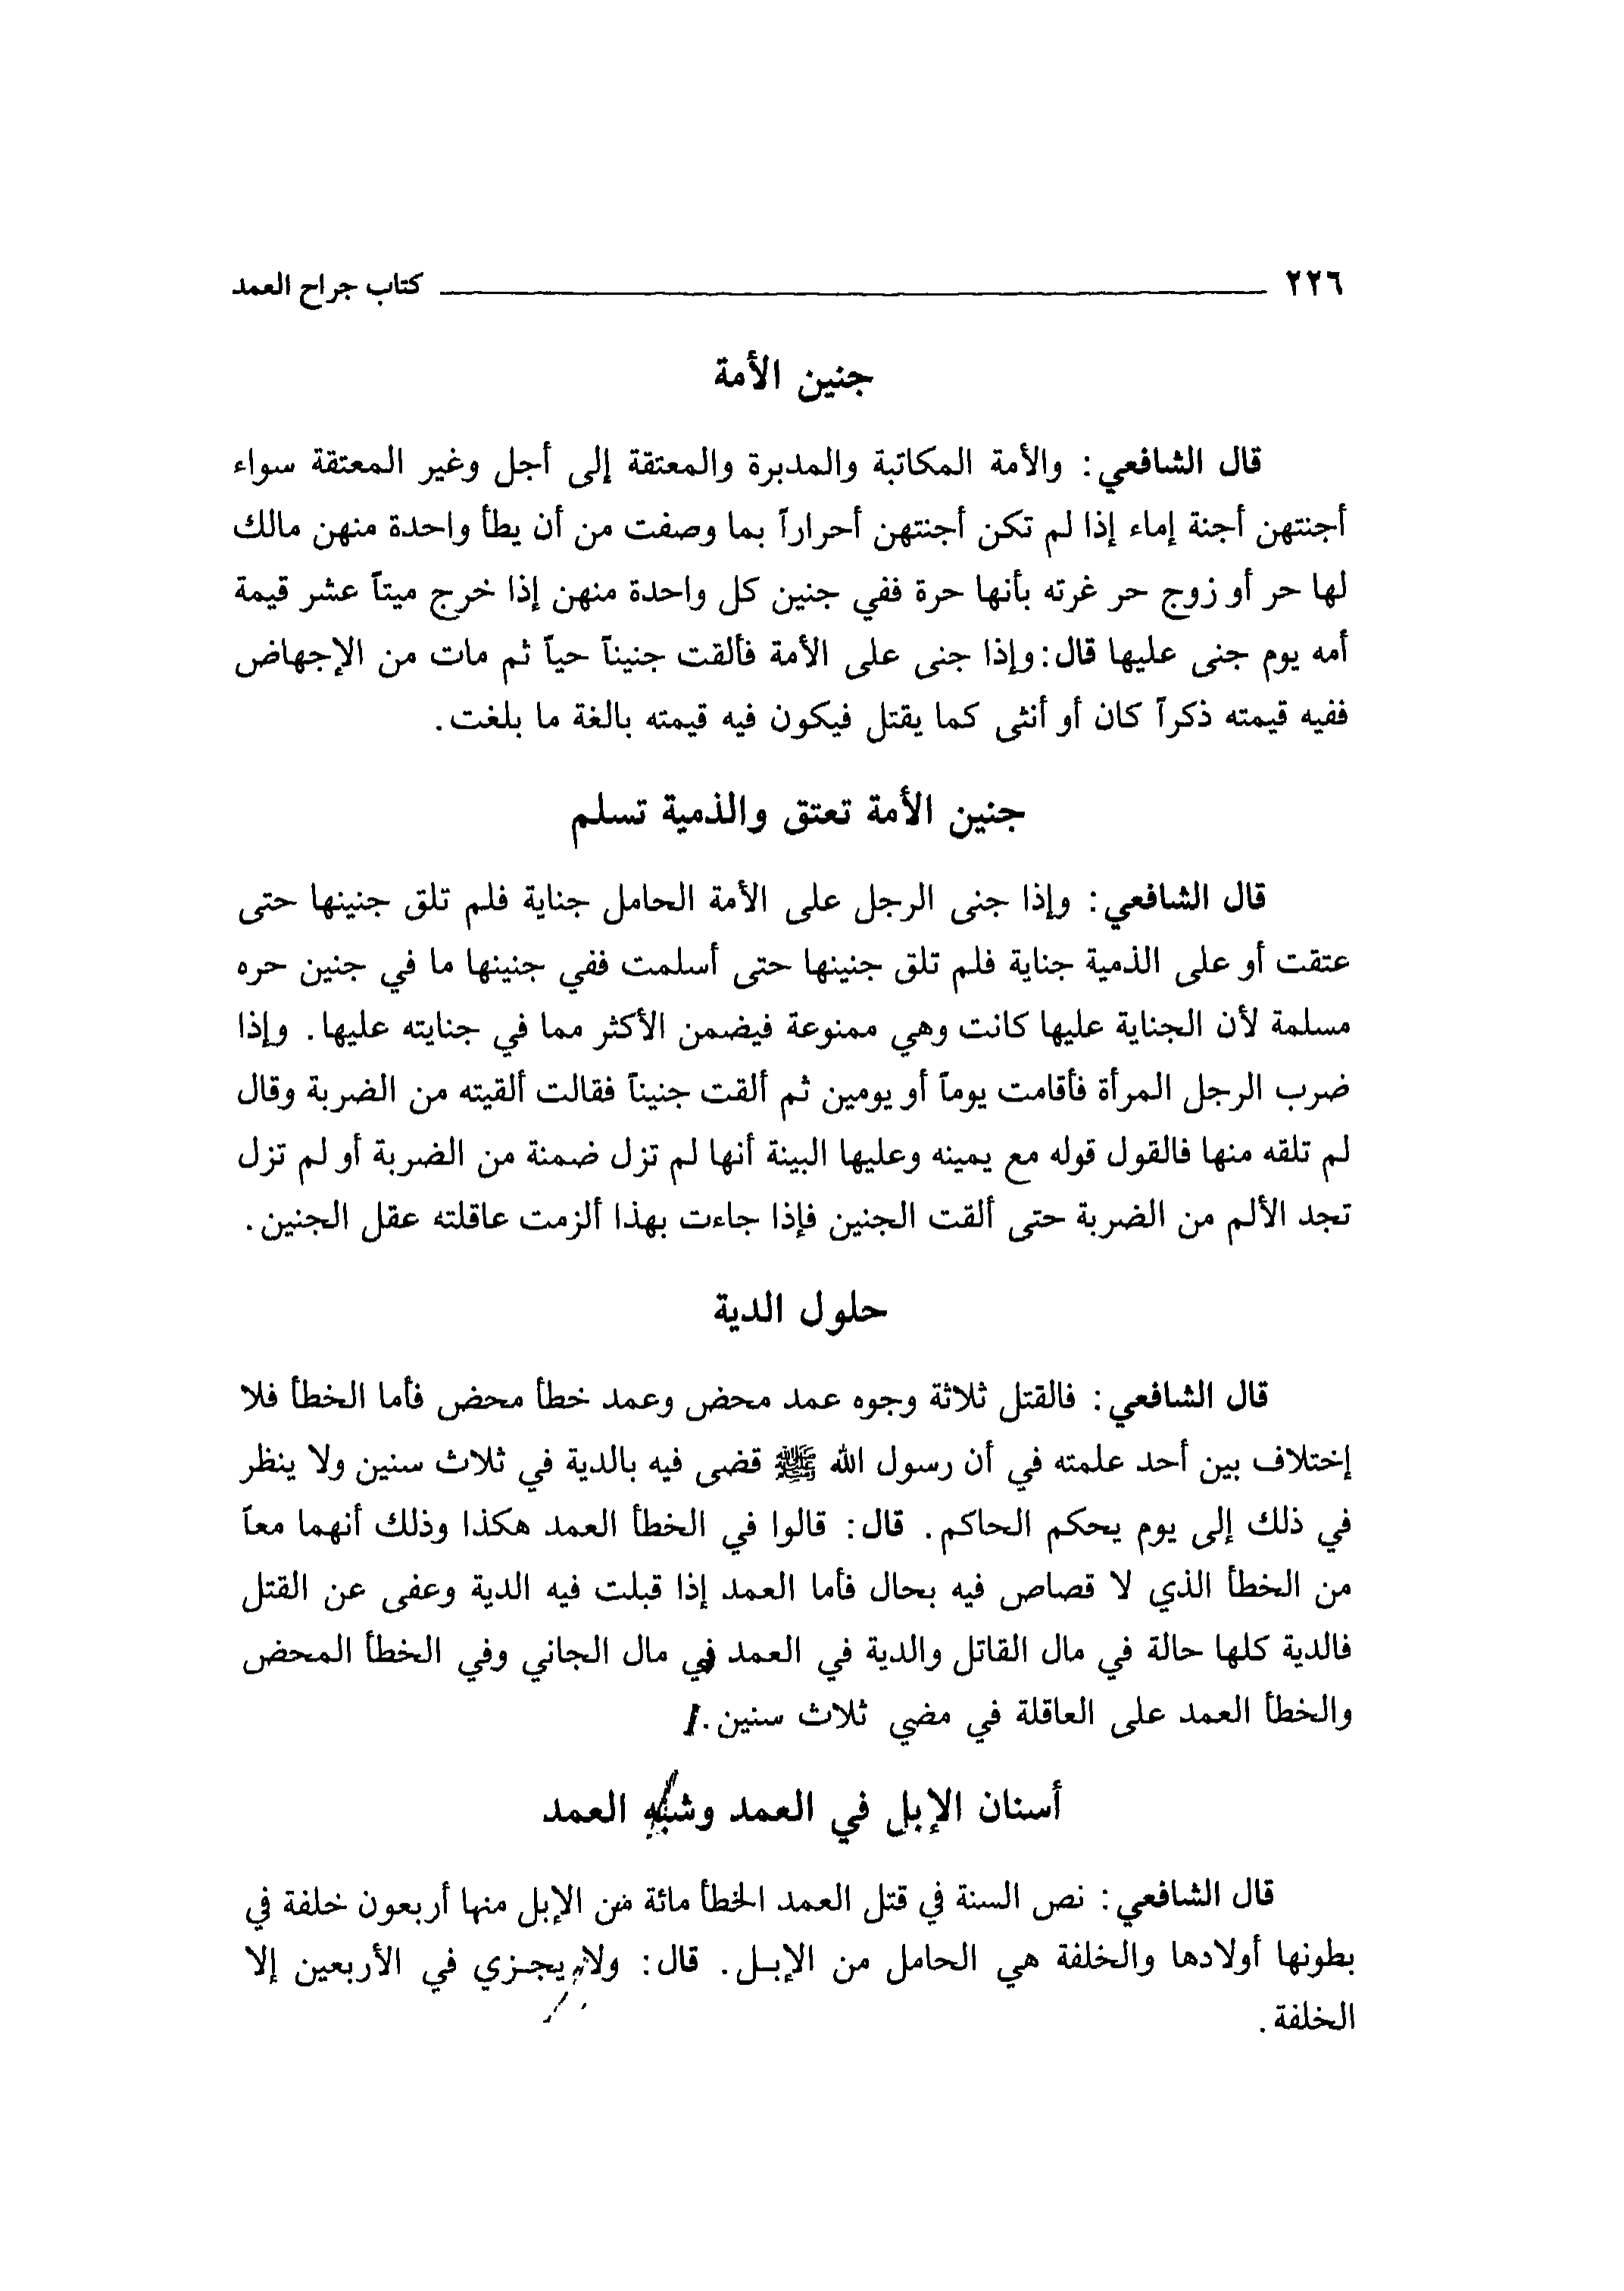 ٢٢٦ كتاب جراح العمد
جنين الأمة
قال الشافعي: والأمة المكاتبة والمدبرة والمعتقة إلى أجل وغير المعتقة سواء
أجنتهن أجنة إماء إذا لم تكن أجنتهن أحراراً بما وصفت من أن يطأ واحدة منهن مالك
لها حر أو زوج حر غرته بأنها حرة ففي جنين كل واحدة منهن إذا خرج ميتاً عشر قيمة
أمه يوم جنى عليها قال: وإذا جنى على الأمة فألقت جنيناً حياً ثم مات من الإجهاض
ففيه قيمته ذكراً كان أو أنثى كما يقتل فيكون فيه قيمته بالغة ما بلغت.
جنين الأمة تعتق والذمية تسلم
قال الشافعي: وإذا جنى الرجل على الأمة الحامل جناية فلم تلق جنينها حتى
عتقت أو على الذمية جناية فلم تلق جنينها حتى أسلمت ففي جنينها ما في جنين حره
مسلمة لأن الجناية عليها كانت وهي ممنوعة فيضمن الأكثر مما في جنايته عليها. وإذا
ضرب الرجل المرأة فأقامت يوماً أو يومين ثم ألقت جنيناً فقالت ألقيته من الضربة وقال
لم تلقه منها فالقول قوله مع يمينه وعليها البينة أنها لم تزل ضمنة من الضربة أو لم تزل
تجد الألم من الضربة حتى ألقت الجنين فإذا جاءت بهذا ألزمت عاقلته عقل الجنين.
حلول الدية
قال الشافعي: فالقتل ثلاثة وجوه عمد محض وعمد خطأ محض فأما الخطأ فلا
إختلاف بين أحد علمته في أن رسول الله ﷺ قضى فيه بالدية في ثلاث سنين ولا ينظر
في ذلك إلى يوم يحكم الحاكم. قال: قالوا في الخطأ العمد هكذا وذلك أنهما معاً
من الخطأ الذي لا قصاص فيه بحال فأما العمد إذا قبلت فيه الدية وعفى عن القتل
فالدية كلها حالة في مال القاتل والدية في العمد في مال الجاني وفي الخطأ المحض
والخطأ العمد على العاقلة في مضي ثلاث سنين.
أسنان الإبل في العمد وشبه العمد
قال الشافعي: نص السنة في قتل العمد الخطأ مائة من الإبل منها أربعون خلفة في
بطونها أولادها والخلفة هي الحامل من الإبـل. قال: ولا يجـزي في الأربعين إلا
الخلفة.